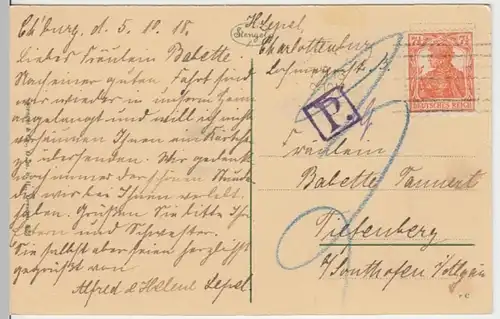 Chburg, d. 5. 10. 18.
Liebes Fräulein Babette
Nach einer guten Fahrt sind
wir wieder in unserm Heim
angelangt und will ich nicht
versäumen Ihnen ein Kärtchen
zu übersenden. Wir gedenken
noch immer der schönen Stunden
die wir bei Ihnen verlebt
haben. Grüßen Sie bitte Ihre
Eltern und Schwester.
Sie selbst aber seien herzlichst
gegrüßt von
Alfred & Helene Lepel
Stengel
H. Lepel,
Charlottenburg
7½ 7½
DEUTSCHES REICH
P.
Fräulein
Babette Tannert
Tiefenberg
b/Sonthofen i/Allgäu